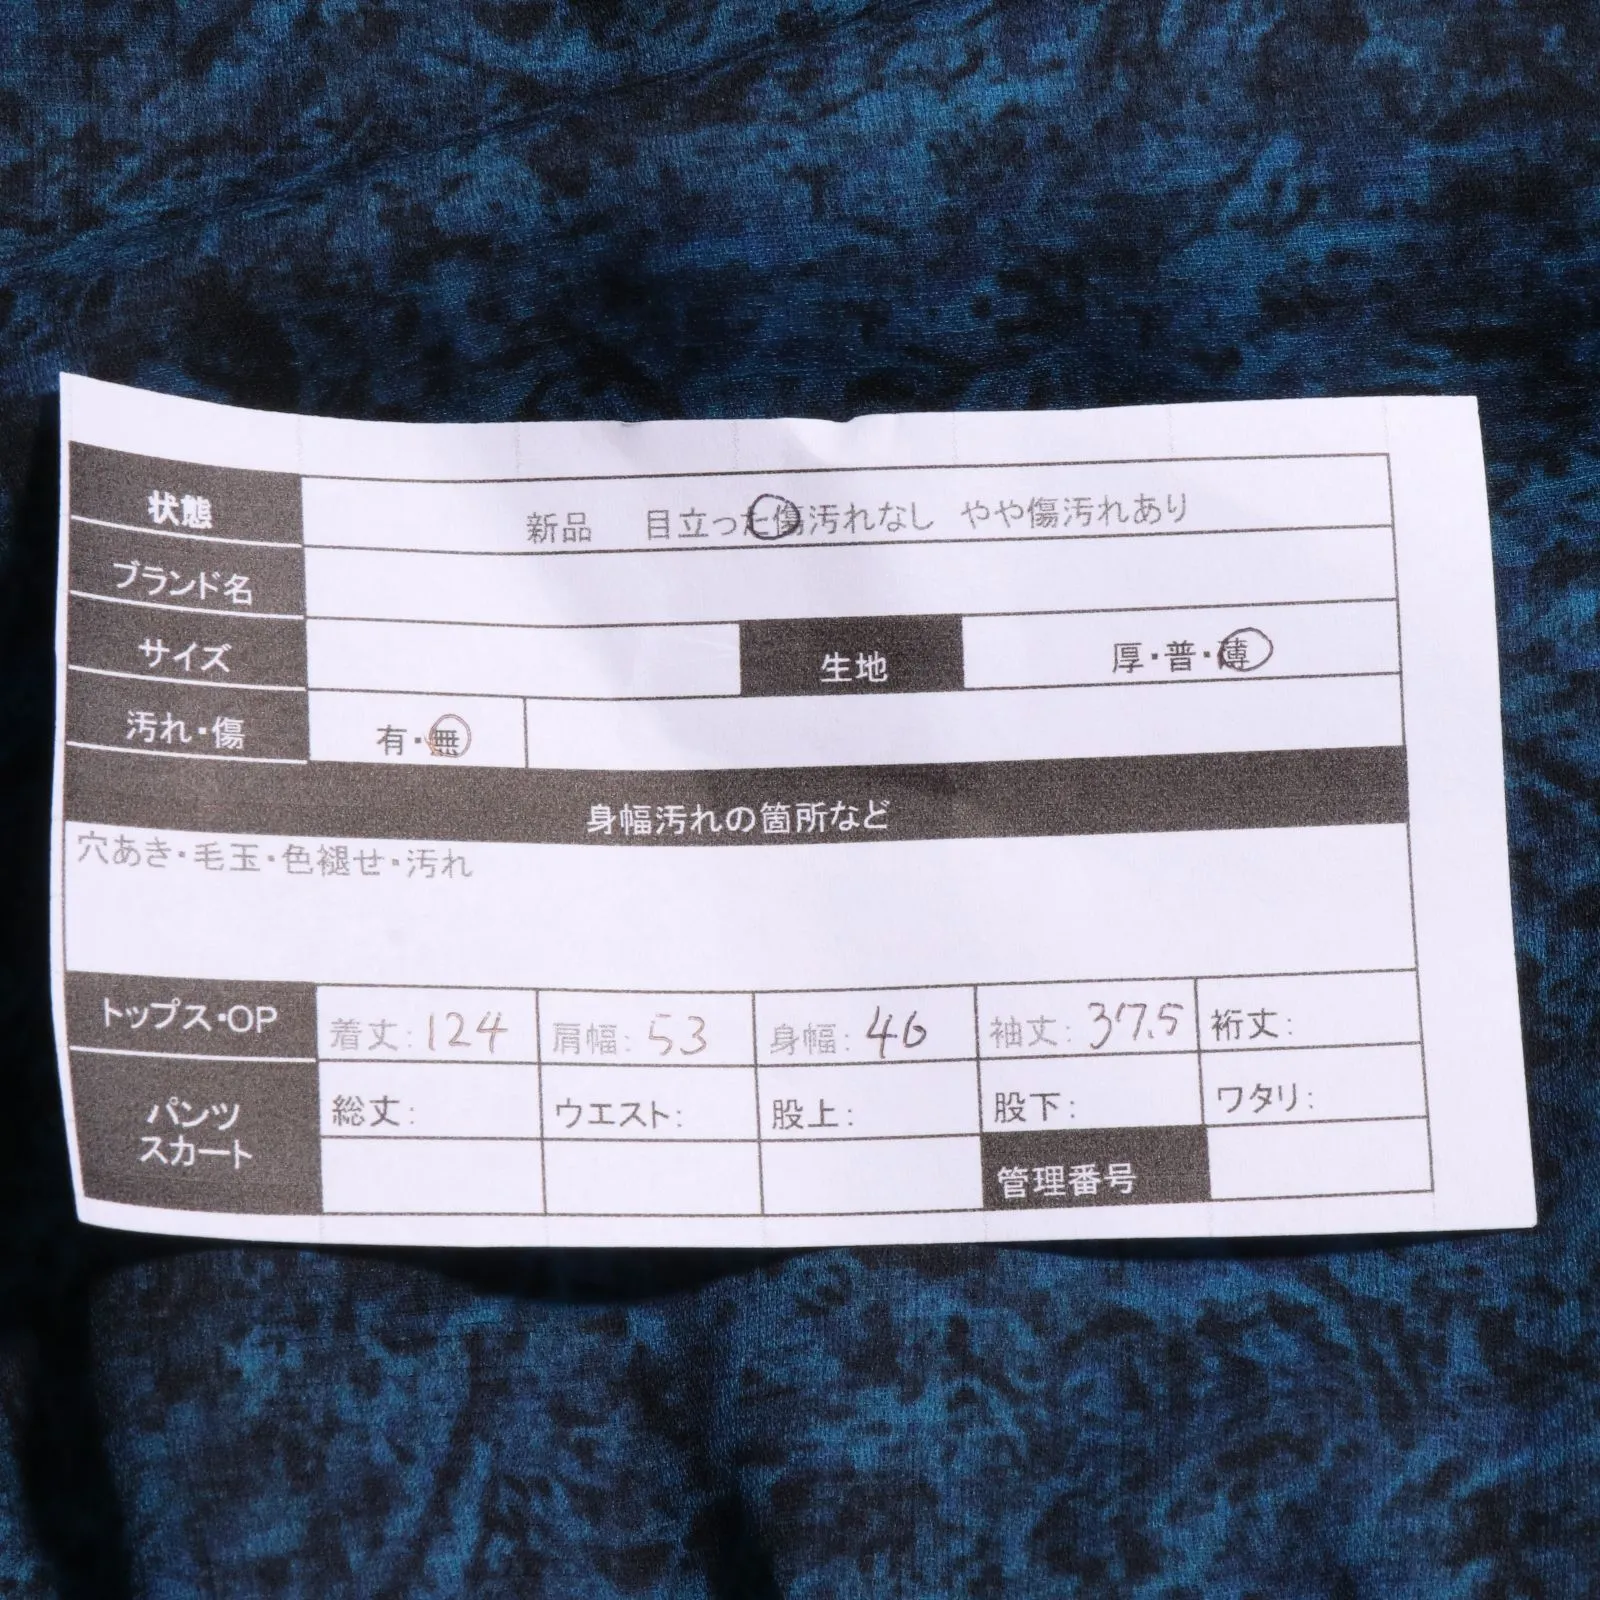 状態 新品 目立った傷汚れなし やや傷汚れあり
ブランド名
サイズ 生地 厚・普・薄
汚れ・傷 有・無
身幅汚れの箇所など
穴あき・毛玉・色褪せ・汚れ
トップス・OP 着丈:124 肩幅:53 身幅:46 袖丈:37.5 裄丈:
パンツ
スカート
総丈: ウエスト: 股上: 股下: ワタリ:
管理番号